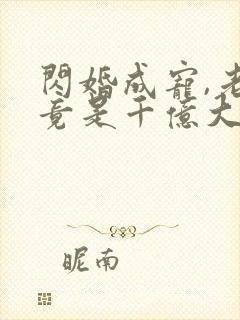 閃婚成寵,老
竟是千億大
昵南